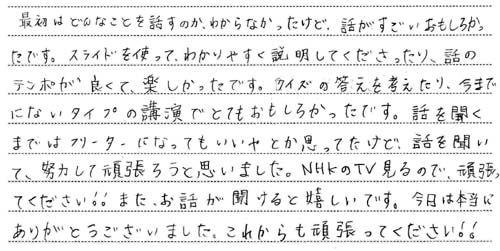 最初はどんなことを話すのか、わからなかったけど、話がすごいおもしろかっ
たです。スライドを使って、わかりやすく説明してくださったり、話の
テンポが良くて、楽しかったです。クイズの答えを考えたり、今まで
にないタイプの講演でとてもおもしろかったです。話を聞く
まではフリーターになってもいいやとか思ってたけど、話を聞い
て、努力して頑張ろうと思いました。NHKのTV見るので、頑張っ
てください!! また、お話が聞けると嬉しいです。今日は本当に
ありがとうございました。これからも頑張ってください!!